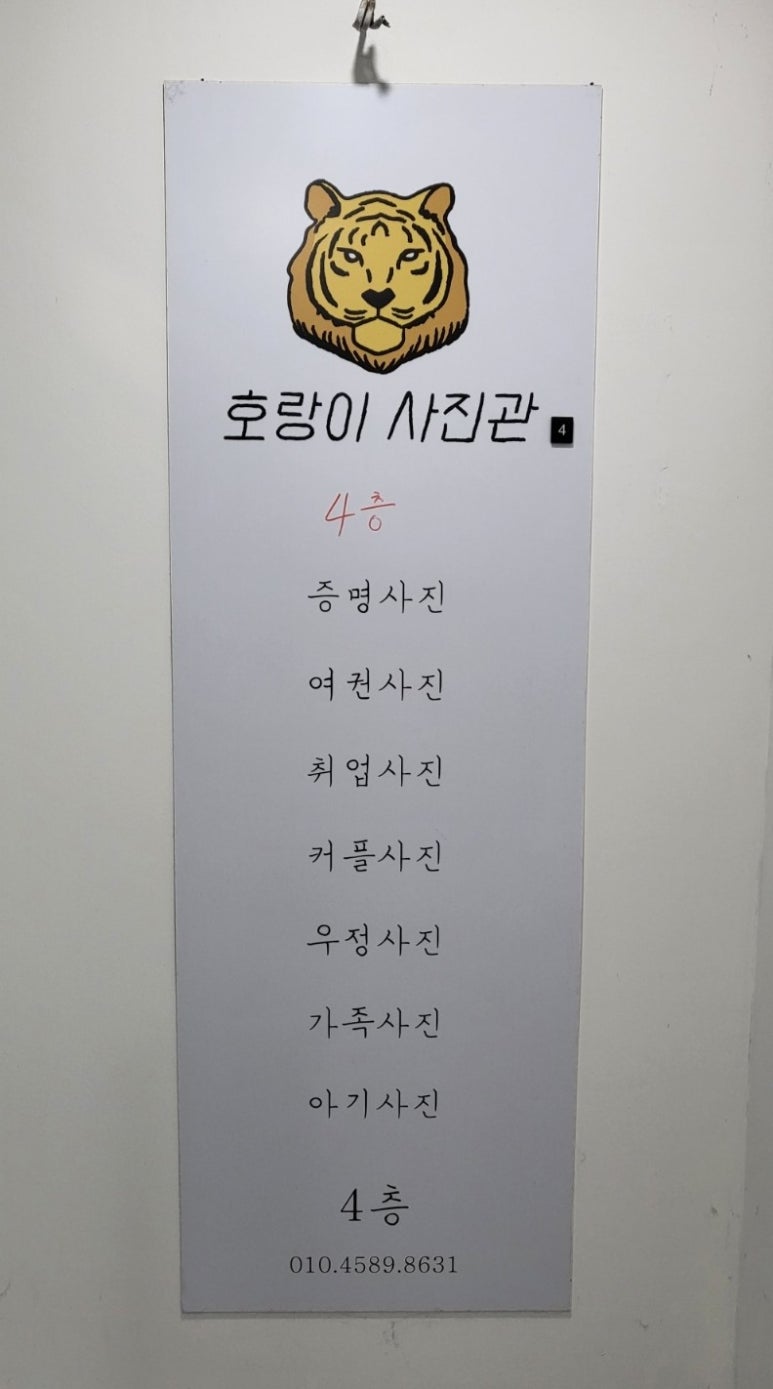 호랑이 사진관 4
4층
증명사진
여권사진
취업사진
커플사진
우정사진
가족사진
아기사진
4층
010.4589.8631